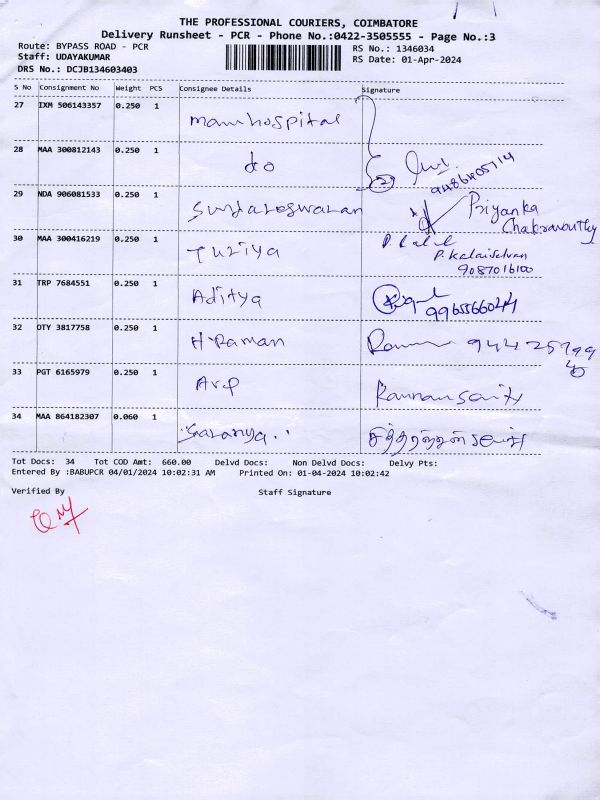 THE PROFESSIONAL COURIERS, COIMBATORE
Delivery Runsheet - PCR - Phone No.:0422-3505555 - Page No.:3
Route: BYPASS ROAD - PCR
Staff: UDAYAKUMAR
DRS No.: DCJB134603403
RS No.: 1346034
RS Date: 01-Apr-2024
S No Consignment No Weight PCS Consignee Details Signature
27 IXM 506143357 0.250 1 mamhospital
28 MAA 300812143 0.250 1 do
9486405714
29 NDA 906081533 0.250 1 Sundareswaran Priyanka
Chakravorthy
30 MAA 300416219 0.250 1 Turiya
P. Kalaiselvan
9087016100
31 TRP 7684551 0.250 1 Aditya
9965566044
32 OTY 3817758 0.250 1 H Raman
33 PGT 6165979 0.250 1 Arp
34 MAA 864182307 0.060 1 Saranya..
Tot Docs: 34 Tot COD Amt: 660.00 Delvd Docs: Non Delvd Docs: Delvy Pts:
Entered By :BABUPCR 04/01/2024 10:02:31 AM Printed On: 01-04-2024 10:02:42
Verified By Staff Signature